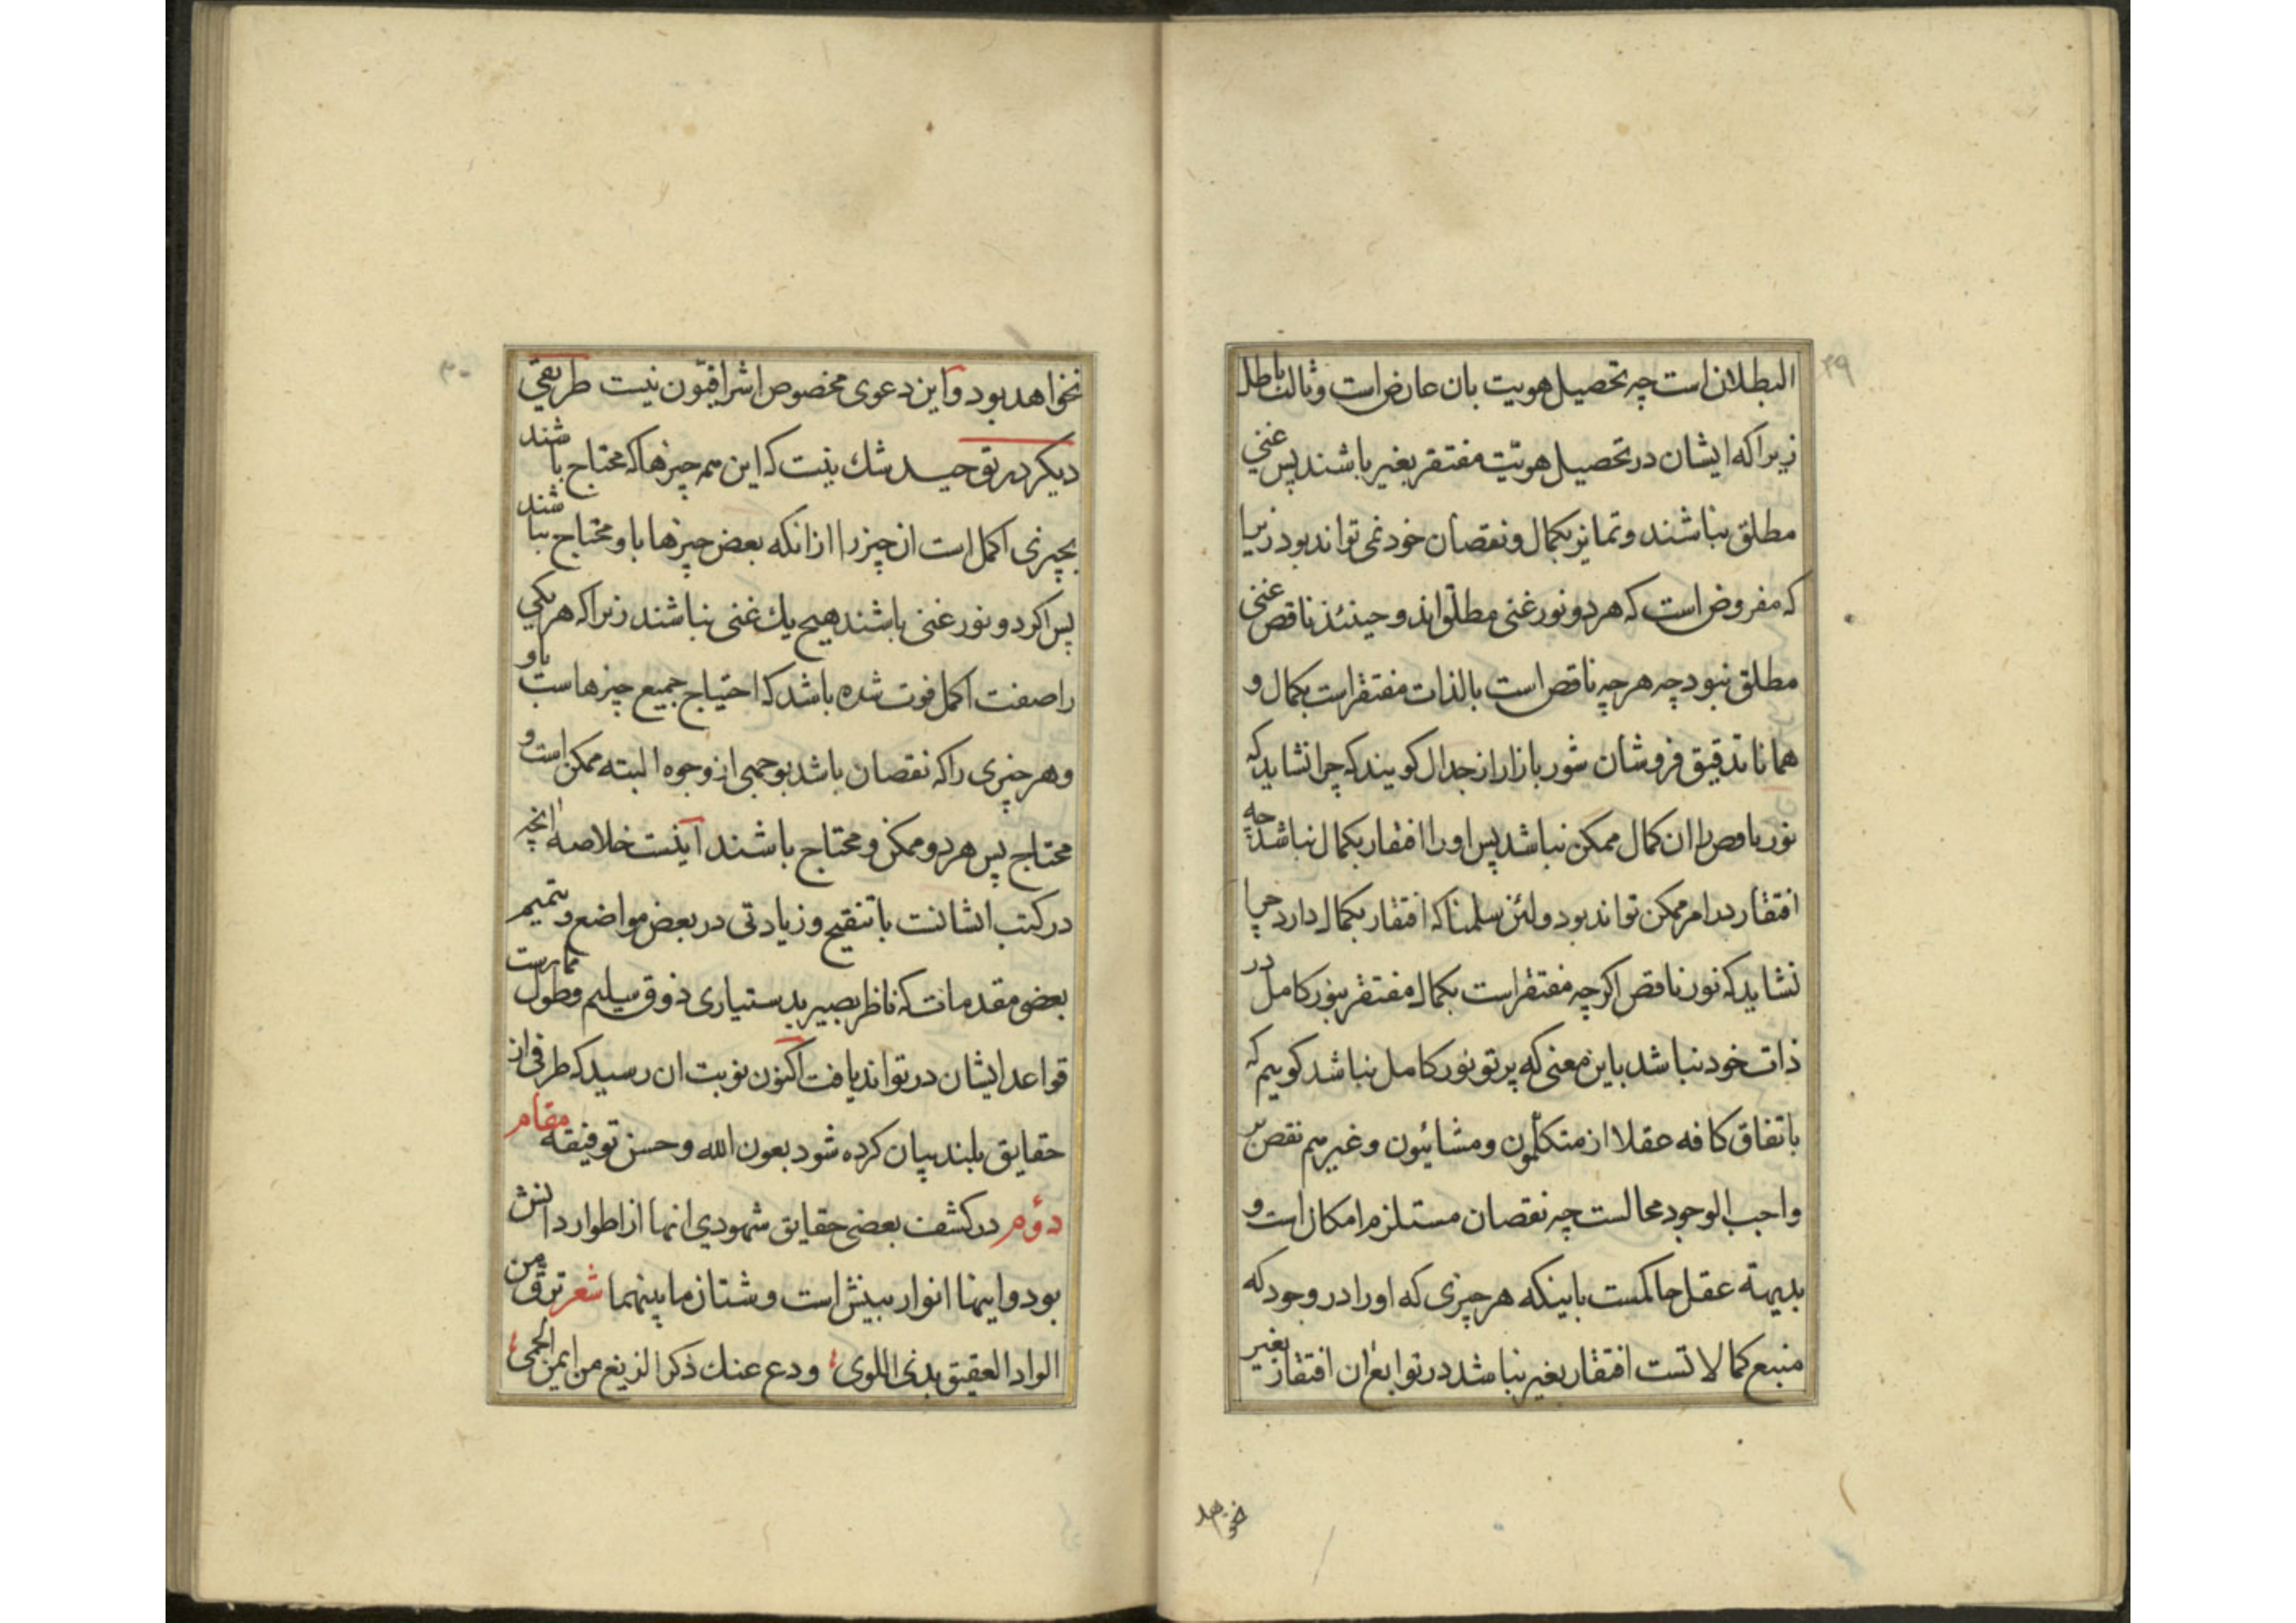 البطلان است چه تحصیل هویت بان عارض است و ثالث باطل
زیرا که ایشان در تحصیل هویّت مفتقر بغیر باشند پس غنی
مطلق نباشند و تمایز بکمال و نقصان خود نمی تواند بود زیرا
که مفروض است که هر دو نور غنی مطلق اند و حینئذ ناقص غنی
مطلق نبود چه هر چه ناقص است بالذات مفتقر است بکمال و
همانا تدقیق فروشان شور بازار از جدال کویند که چرا نشاید که
نور ناقص را ان کمال ممکن نباشد پس او را افتقار بکمال نباشد چه
افتقار در امر ممکن تواند بود و لئن سلمنا که افتقار بکمال دارد چرا
نشاید که نور ناقص اکرچه مفتقر است بکمال مفتقر بنور کامل در
ذات خود نباشد باین معنی که پرتو نور کامل نباشد کوییم که
باتفاق کافه عقلا از متکلّمون و مشائیون و غیرهم نقص بر
واجب الوجود محالست چه نقصان مستلزم امکان است و
بدیهة عقل حاکمست باینکه هر چیزی که او را در وجود که
منبع کمالاتست افتقار بغیر نباشد در توابع ان افتقار بغیر
خواهد
۲۹
نخواهد بود و این دعوی مخصوص اشراقیّون نیست طریقی
دیکر در توحید شك نیست که این همه چیزها که محتاج باشند
بچیزی اکمل است ان چیز را از انکه بعض چیزها باو محتاج نباشند
پس اکر دو نور غنی باشند هیچ یك غنی نباشند زیرا که هر یکی
را صفت اکمل فوت شده باشد که احتیاج جمیع چیزهاست باو
و هر چیزی را که نقصان باشد بوجهی از وجوه البته ممکن است و
محتاج پس هر دو ممکن و محتاج باشند اینست خلاصه انچه
در کتب ایشانست با تنقیح و زیادتی در بعض مواضع و تتمیم
بعضی مقدمات که ناظر بصیر بدستیاری ذوق سلیم و طول ممارست
قواعد ایشان در تواند یافت اکنون نوبت ان رسید که طرفی از
حقایق بلند بیان کرده شود بعون الله و حسن توفیقه مقام
دوّم در کشف بعضی حقایق شهودی انها از اطوار دانش
بود و اینها انوار بینش است و شتان ما بینهما شعر ترق من
الواد العقیق بذی اللوی ودع عنك ذکر الزیغ من ایمن الحمی
۳۰